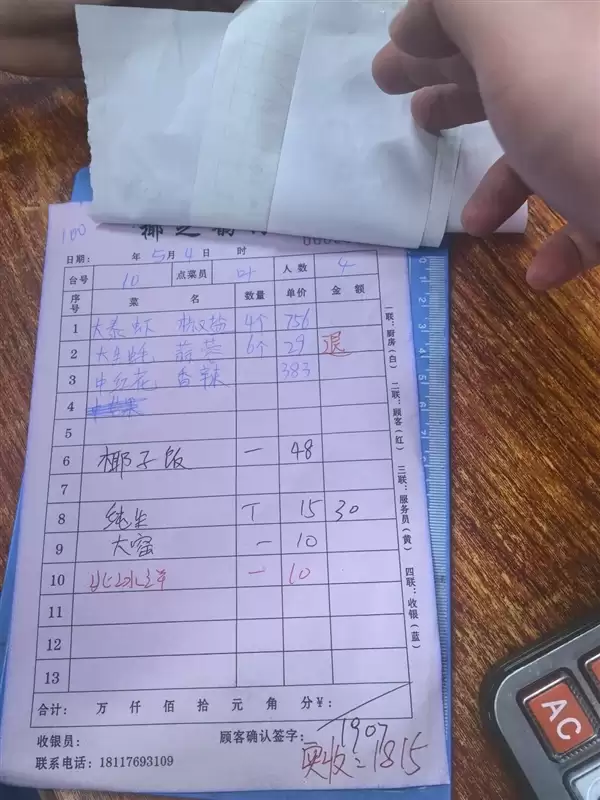 100
日期： 年 5 月 4 日 时
台号 10 点菜员 叶 人数 4
序号 菜名 数量 单价 金额
1 大泰虾 椒盐 4个 756
2 大生蚝 蒜蓉 6个 29 退
3 中红花 香辣 383
4
5
6 椰子饭 一 48
7
8 纯生 T 15 30
9 大窑 一 10
10 一 10
11
12
13
合计： 万 仟 佰 拾 元 角 分￥：
收银员： 顾客确认签字： 1907
联系电话：18117693109 实收：1815
一联：厨房（白） 二联：顾客（红） 三联：服务员（黄） 四联：收银（蓝）
0 1 2 3 4 5
AC